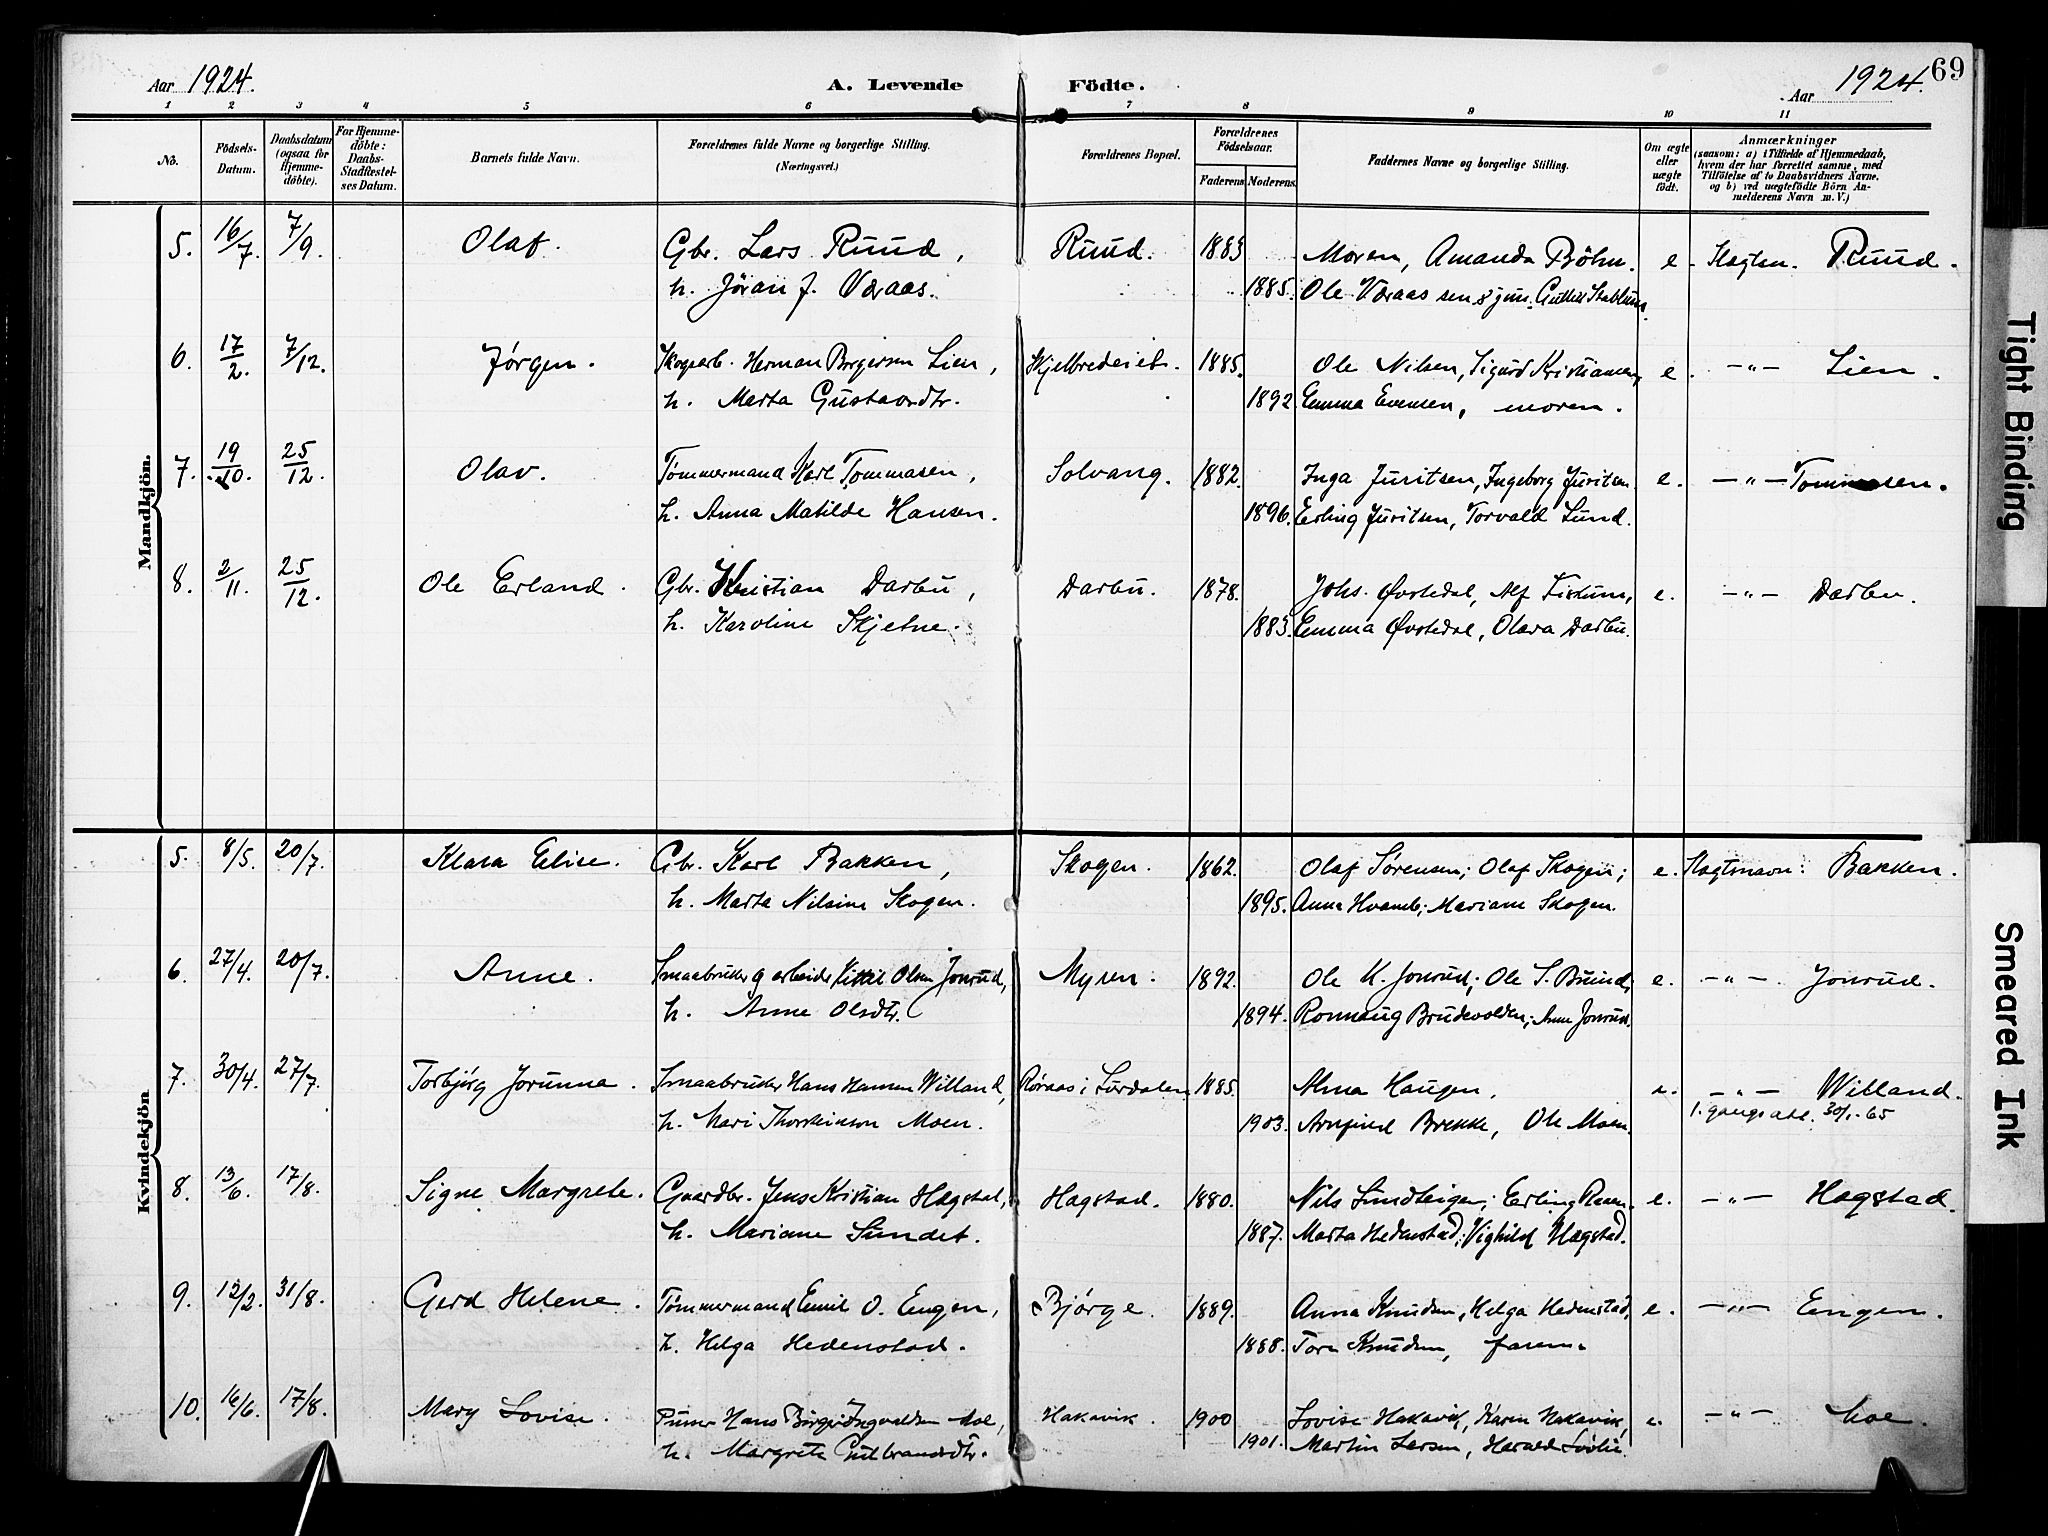 Aar 1924. A. Levende Födte. Aar 1924. 69
1 2 3 4 5 6 7 8 9 10 11
No. Födsels-Datum. Daabsdatum (ogsaa for Hjemme-döbte). For Hjemme-döbte: Daabs-Stadfæstel-ses Datum. Barnets fulde Navn. Forældrenes fulde Navne og borgerlige Stilling. (Næringsvei.) Forældrenes Bopæl. Forældrenes Födselsaar. Faderens Moderens. Faddernes Navne og borgerlige Stilling. Om ægte eller uægte födt. Anmærkninger (saasom: a) i Tilfælde af Hjemmedaab, hvem der har forrettet samme, med Tilföielse af to Daabsvidners Navne. og b) ved uægtefödte Börn An-melderens Navn m. V.)
Mandkjön.
5. 16/7. 7/9. Olaf. Gbr. Lars Ruud, Ruud. 1883 Moren, Amanda Bøhn. e. Slegtsn. Ruud.
h. Jøran J. Væraas. 1885. Ole Væraas sen. & jun.
6. 17/2. 7/12. Jørgen. Skogsarb. Herman Borgersen Lien, Skjelbredeiet. 1885. Ole Nilsen, Sigurd Kristiansen, e. —"— Lien.
h. Marta Gustavsdtr. 1892 Emma Evensen, moren.
7. 19/10. 25/12. Olav. Tømmermand Karl Tommasen, Solvang. 1882. Inga Juritsen, Ingeborg Juritsen. e. —"— Tommasen.
h. Anna Matilde Hansen. 1896. Erling Juritsen, Torvald Lund.
8. 2/11. 25/12. Ole Erland. Gbr. Kristian Darbu, Darbu. 1878. Johs. Øvstedal, Alf Fiskum, e. —"— Darbu.
h. Karoline Skjetne. 1883. Emma Øvstedal, Olava Darbu.
Kvindekjön
5. 8/5. 20/7. Klara Elise. Gbr. Karl Bakken, Skogen. 1862. Olaf Sørensen; Olaf Skogen; e. Slegtsnavn: Bakken.
h. Marta Nilsine Skogen. 1895. Anna Hvamb; Mariane Skogen.
6. 27/4. 20/7. Anne. Smaabruker og arbeider Kittil Olsen Jonrud, Myren. 1892. Ole K. Jonrud; Ole S. e. —"— Jonrud.
h. Anne Olsdtr. 1894. Ronnaug Brudevolden; Anne Jonrud.
7. 30/4. 27/7. Torbjørg Jorunna. Smaabruker Hans Hansen Willand, Røraas i Lurdalen 1885. Alma Haugen. e. —"— Willand.
h. Mari Thorsteinson Moen. 1903. Arnfind Brekke, Ole Moen. 1. gangs att. 30/1-65
8. 13/6. 17/8. Signe Margrete. Gaardbr. Jens Kristian Hagstad, Hagstad. 1880. Nils Lundteigen; Erling e. —"— Hagstad.
h. Mariane Sundet. 1887. Marta Hedenstad; Vighild Hagstad.
9. 12/2. 31/8. Gerd Helene. Tømmermand Emil O. Engen, Bjørge. 1889. Anna Knudsen, Helga Hedenstad, e. —"— Engen.
h. Helga Hedenstad. 1888. Tore Knudsen, faren.
10. 16/6. 17/8. Mary Lovise. Hans Birger Ingvaldsen Moe, Hakavik. 1900 Lovise Hakavik, Karen Hakavik, e. —"— Moe.
h. Margrete Gulbrandsdtr. 1901. Martin Larsen, Harald
Tight Binding
Smeared Ink